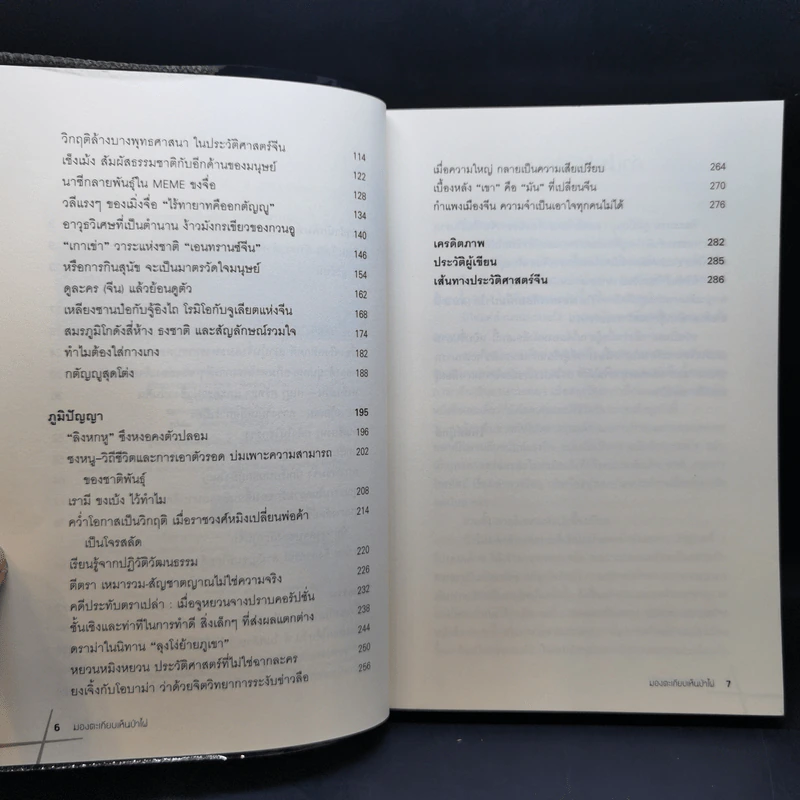 วิกฤติล้างบางพุทธศาสนา ในประวัติศาสตร์จีน 114
เช็งเม้ง สัมผัสธรรมชาติกับอีกด้านของมนุษย์ 122
นาซีกลายพันธุ์ใน MEME ขงจื่อ 128
วลีแรงๆ ของเมิ่งจื่อ “ไร้ทายาทคืออกตัญญู” 134
อาวุธวิเศษที่เป็นตำนาน ง้าวมังกรเขียวของกวนอู 140
“เกาเข่า” วาระแห่งชาติ “เอนทรานซ์จีน” 146
หรือการกินสุนัข จะเป็นมาตรวัดใจมนุษย์ 154
ดูละคร (จีน) แล้วย้อนดูตัว 162
เหลียงซานป๋อกับจู้อิงไถ โรมิโอกับจูเลียตแห่งจีน 168
สมรภูมิโกดังสี่ห้าง ธงชาติ และสัญลักษณ์รวมใจ 174
ทำไมต้องใส่กางเกง 182
กตัญญูสุดโต่ง 188
ภูมิปัญญา 195
“ลิงหกหู” ซึงหงอคงตัวปลอม 196
ซงหนู–วิถีชีวิตและการเอาตัวรอด บ่มเพาะความสามารถ 202
ของชาติพันธุ์
เรามี ขงเบ้ง ไว้ทำไม 208
คว่ำโอกาสเป็นวิกฤติ เมื่อราชวงศ์หมิงเปลี่ยนพ่อค้า 214
เป็นโจรสลัด
เรียนรู้จากปฏิวัติวัฒนธรรม 220
ตีตรา เหมารวม-สัญชาตญาณไม่ใช่ความจริง 226
คดีประทับตราเปล่า : เมื่อจูหยวนจางปราบคอรัปชั่น 232
ชั้นเชิงและท่าทีในการทำดี สิ่งเล็กๆ ที่ส่งผลแตกต่าง 238
ดราม่าในนิทาน “ลุงโง่ย้ายภูเขา” 244
หยวนหมิงหยวน ประวัติศาสตร์ที่ไม่ใช่ฉากละคร 250
ยงเจิ้งกับโอบาม่า ว่าด้วยจิตวิทยาการระงับข่าวลือ 256
6 มองตะเกียบเห็นป่าไผ่
เมื่อความใหญ่ กลายเป็นความเสียเปรียบ 264
เบื้องหลัง “เขา” คือ “มัน” ที่เปลี่ยนจีน 270
กำแพงเมืองจีน ความจำเป็นเอาใจทุกคนไม่ได้ 276
เครดิตภาพ 282
ประวัติผู้เขียน 285
เส้นทางประวัติศาสตร์จีน 286
มองตะเกียบเห็นป่าไผ่ 7